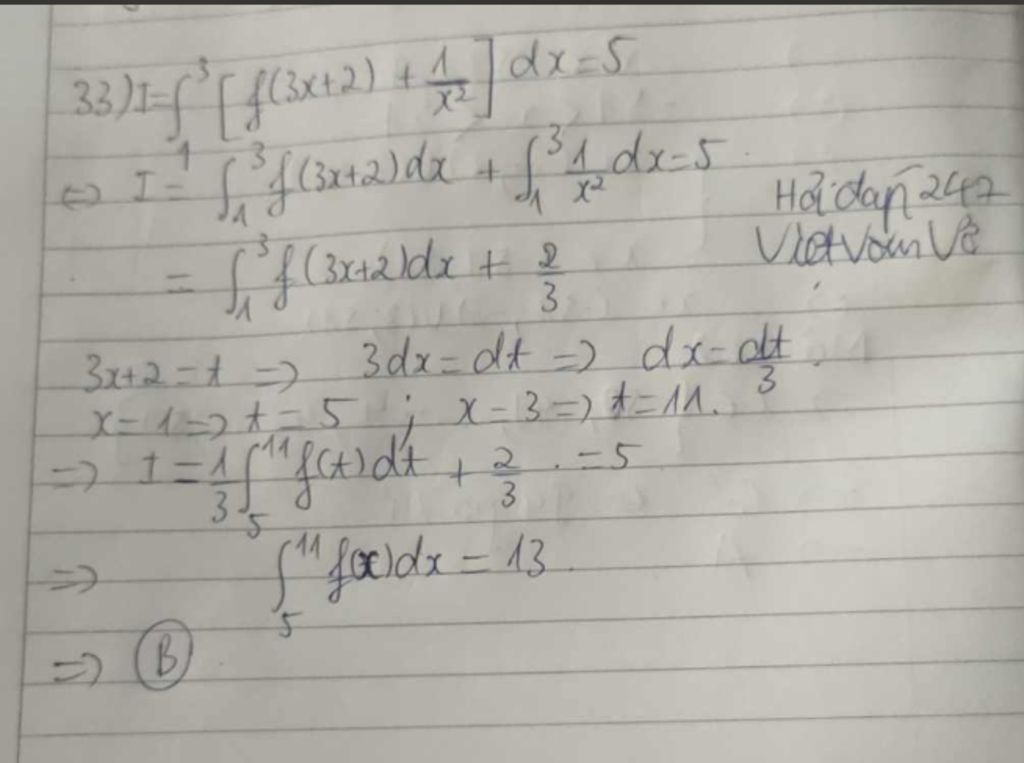 33) I = ∫₁³ [f(3x+2) + 1/x²] dx = 5
⇔ I = ∫₁³ f(3x+2) dx + ∫₁³ 1/x² dx = 5
Hỏi đáp 247
= ∫₁³ f(3x+2) dx + 2/3
VietVanVe
3x+2 = t ⇒ 3dx = dt ⇒ dx = dt/3.
x = 1 ⇒ t = 5 ; x = 3 ⇒ t = 11.
⇒ I = 1/3 ∫₅¹¹ f(t) dt + 2/3 . = 5
⇒ ∫₅¹¹ f(x) dx = 13.
⇒ B